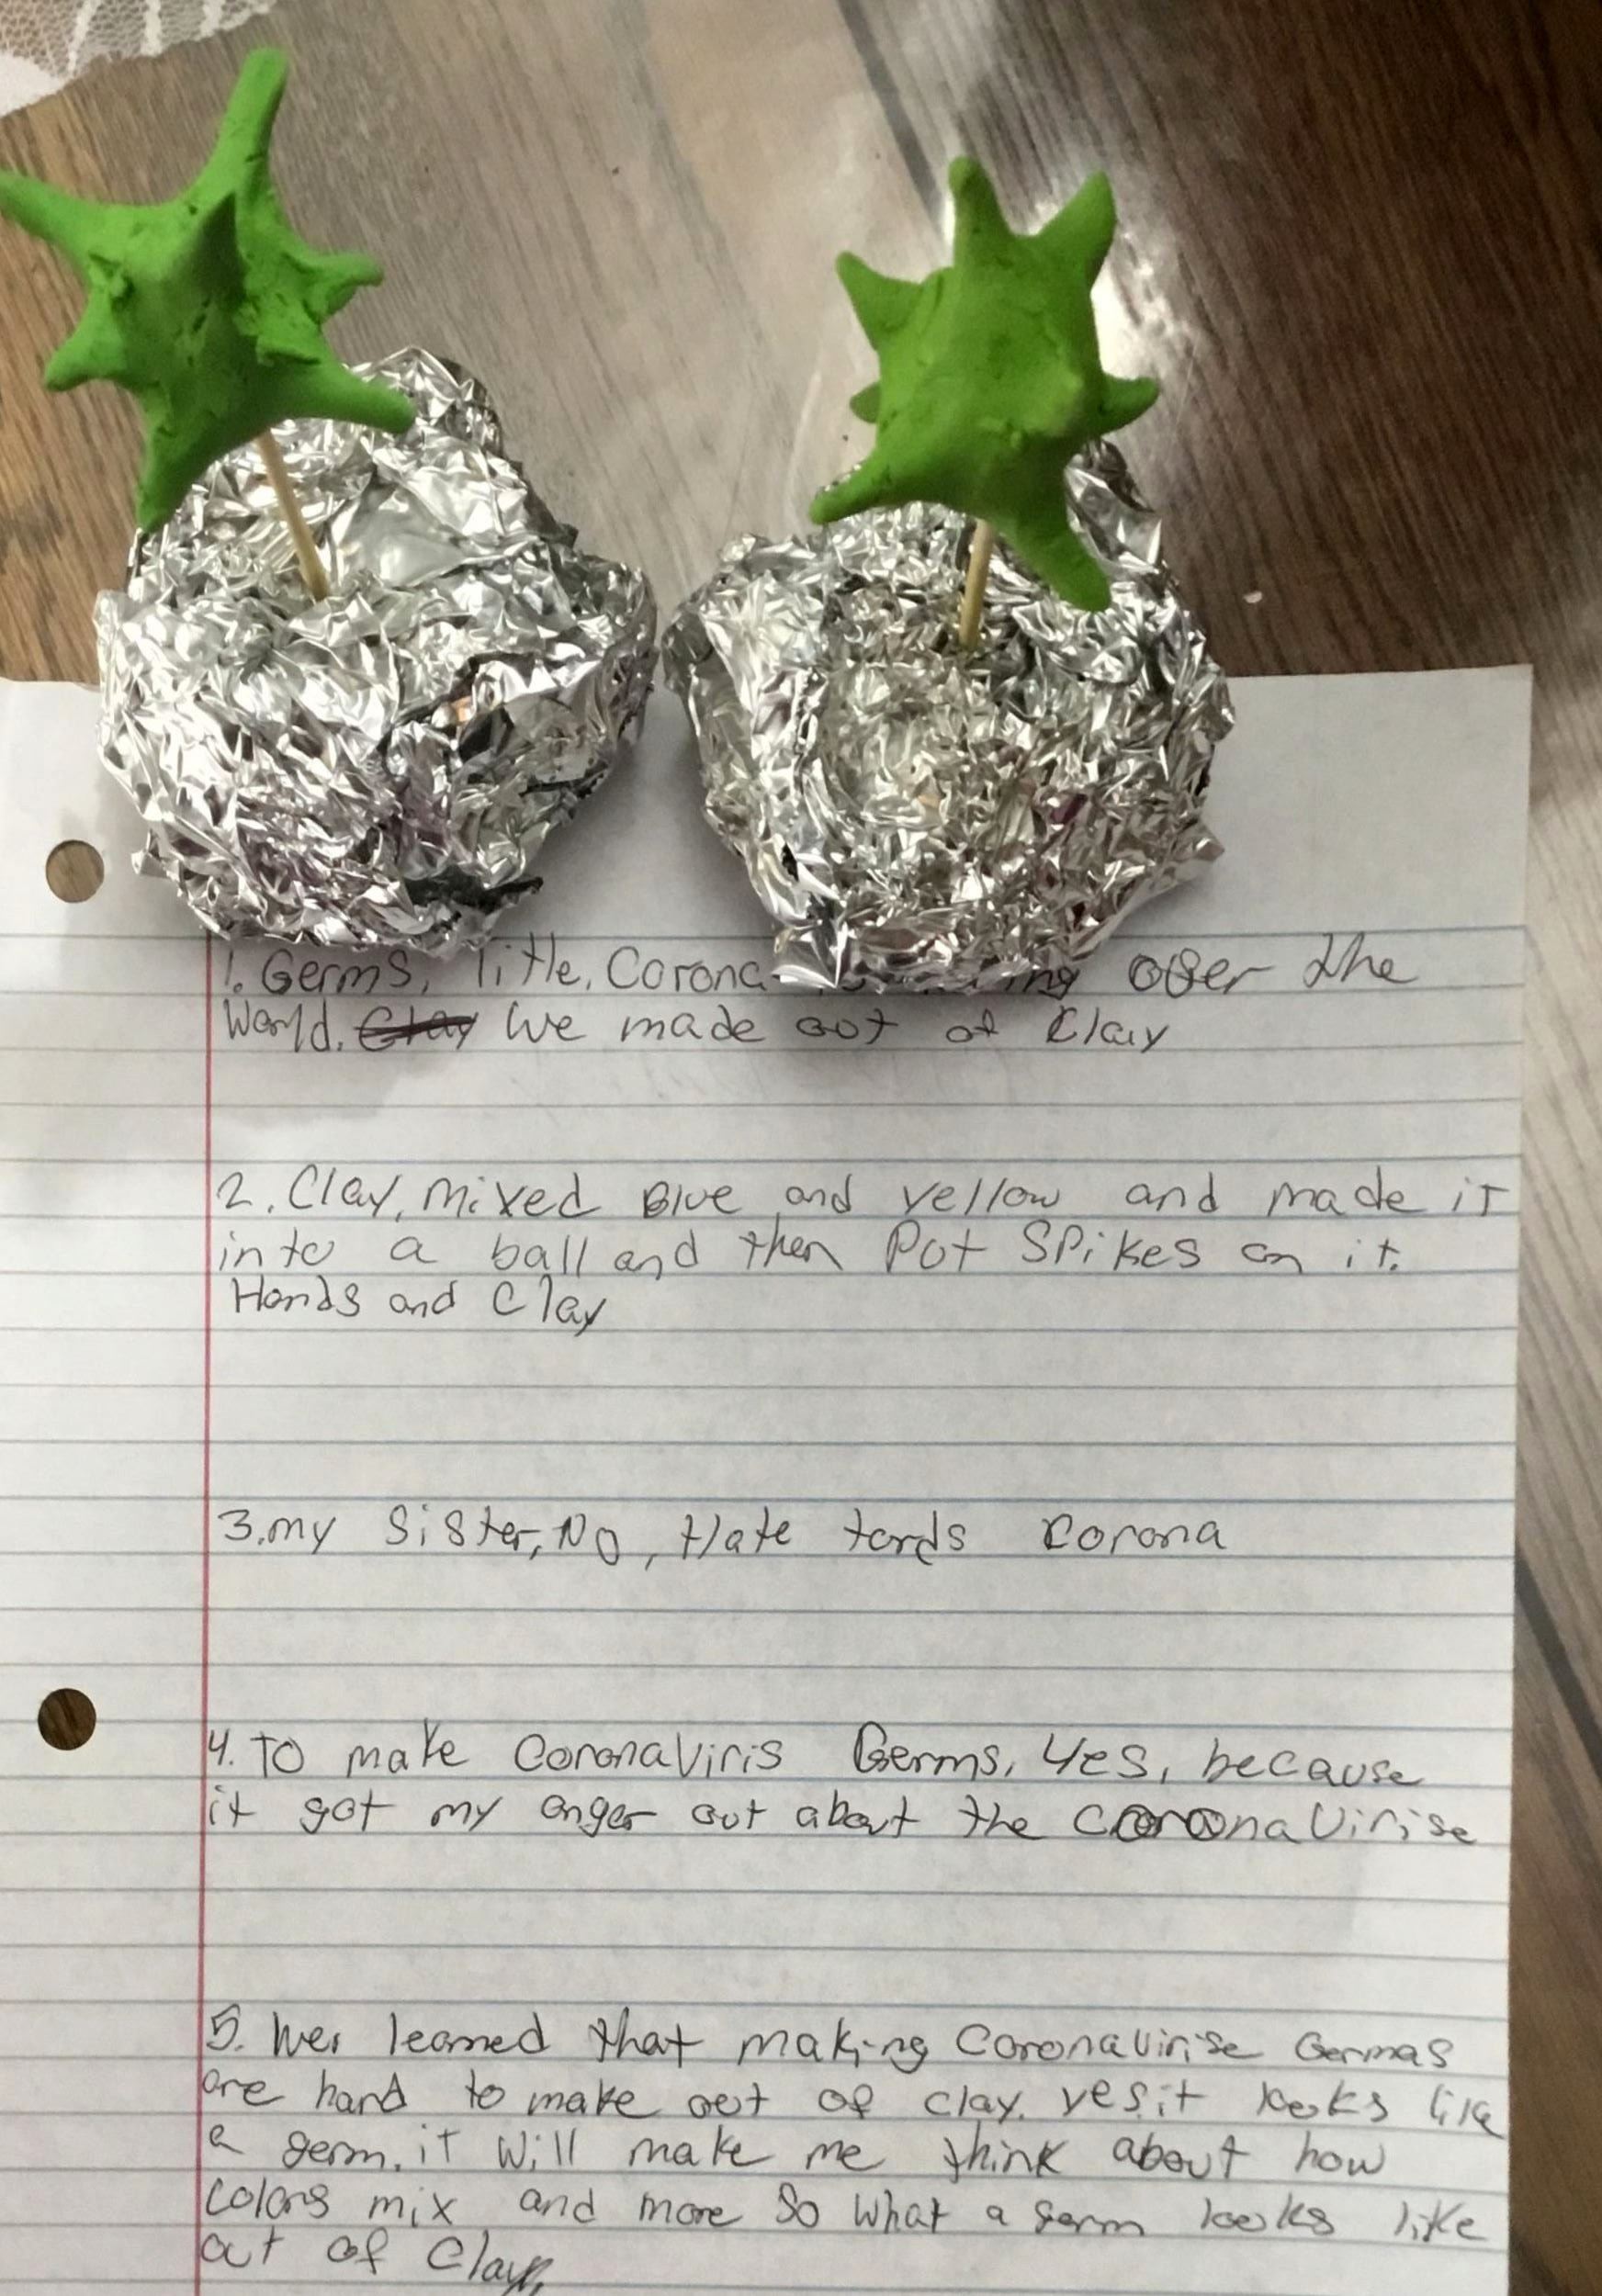 1. Germs, Title, Corona ing over the
World. Clay We made out of Clay
2. Clay, Mixed Blue and yellow and made it
into a ball and then Pot Spikes on it.
Hands and Clay
3. my Sister, No, Hate tords Corona
4. TO make CoronaViris Germs, Yes, because
it got my anger out about the CoronaVirise
5. Wer learned that making CoronaVirise Germas
are hard to make out of clay. yes it looks like
a germ. it will make me think about how
colors mix and more so what a germ looks like
out of Clay.